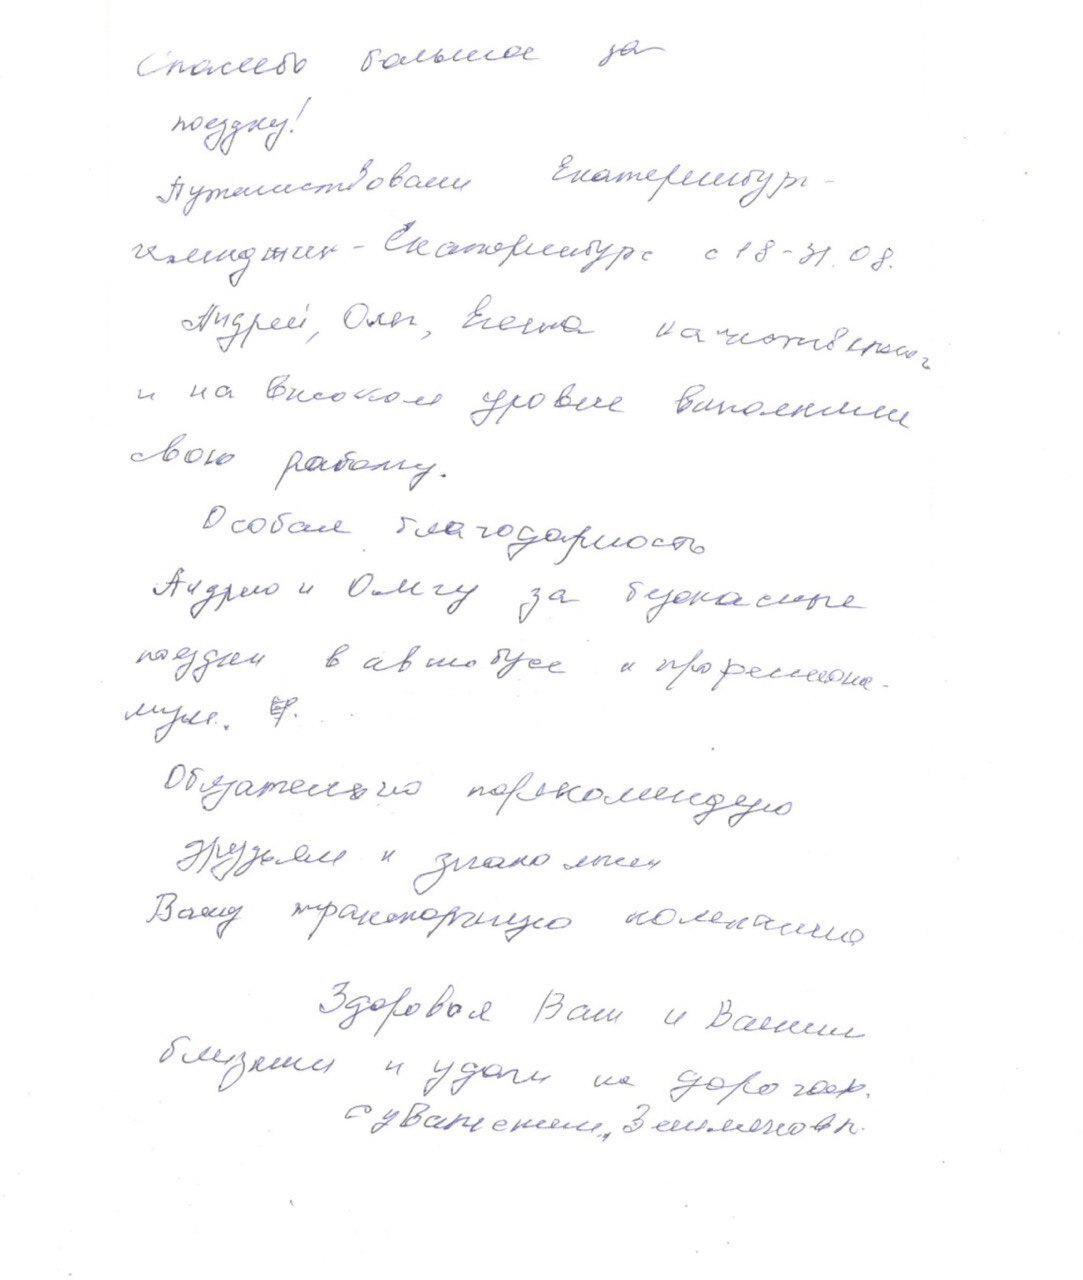 Спасибо большое за
поездку!
Путешествовали Екатеринбург-
Геленджик - Екатеринбург с 18-31.08.
Андрей, Олег, Елена качественно
и на высоком уровне выполнили
свою работу.
Особая благодарность
Андрею и Олегу за безопасные
поездки в автобусе и профессиона-
лизм.
Обязательно порекомендую
друзьям и знакомым
Вашу транспортную компанию
Здоровья Вам и Вашим
близким и удачи на дорогах.
С уважением,